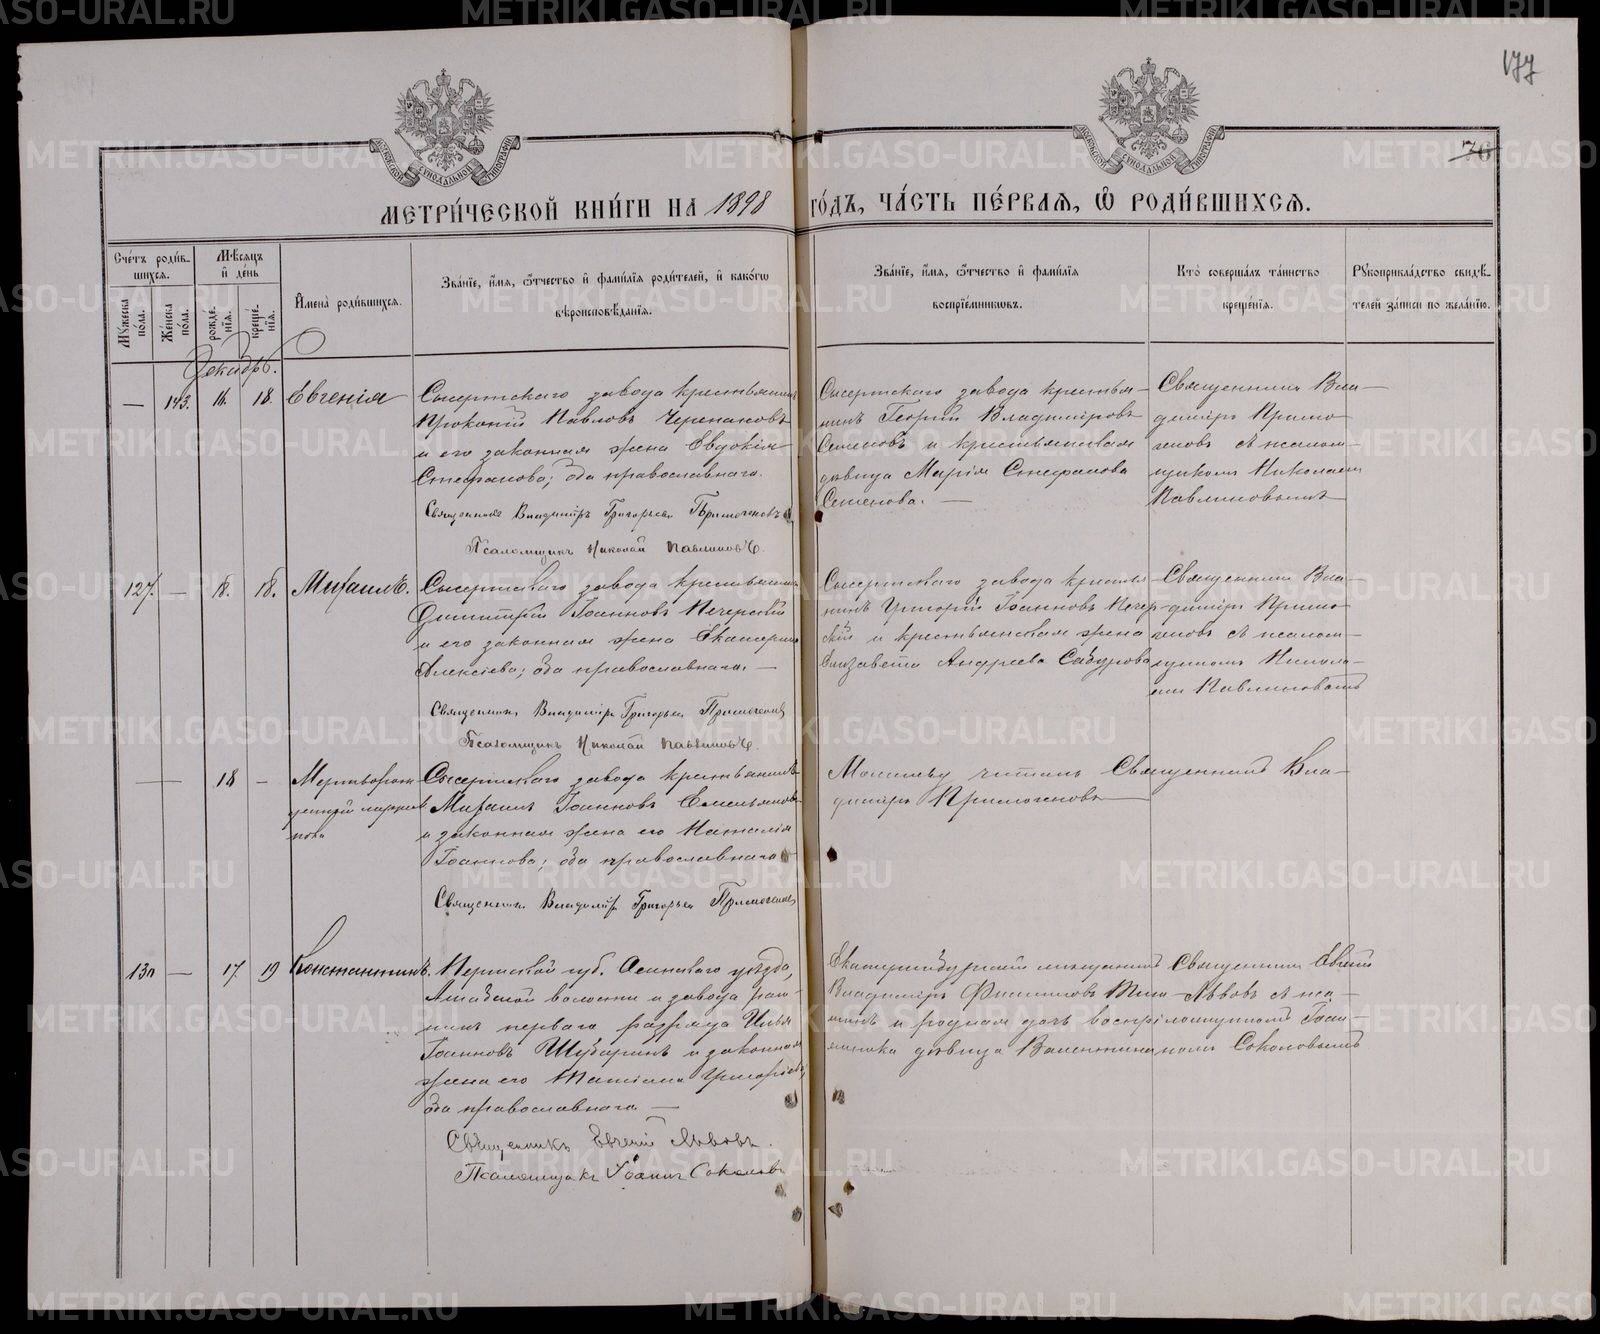 177
76
МОСКОВСКОЙ СѴНОДАЛЬНОЙ ТИПОГРАФІИ
МОСКОВСКОЙ СѴНОДАЛЬНОЙ ТИПОГРАФІИ
МЕТРИ́ЧЕСКОЙ КНИ́ГИ НА 1898 ГО́ДЪ, ЧА́СТЬ ПЕ́РВАЯ, Ѽ РОДИ́ВШИХСЯ.
Сче́тъ роди́вшихся.
Му́жеска по́ла.
Же́нска по́ла.
Мѣ́сяцъ и҆ де́нь
рожде́нїѧ.
креще́нїѧ.
И҆мена̀ роди́вшихся.
Зва́нїе, и҆́мѧ, ѻ҆́тчество и҆ фами́лїѧ роди́телей, и҆ како́гѡ
вѣроисповѣ́данїѧ.
Зва́нїе, и҆́мѧ, ѻ҆́тчество и҆ фами́лїѧ
воспрїе́мникѡвъ.
Кто̀ соверша́лъ та́инство
креще́нїѧ.
Рꙋкоприкла́дство свидѣ́-
телей за́писи по жела́нїю.
Декабрь.
— 143. 16. 18. Евгенія
Сысертскаго завода крестьянинъ
Прокопій Павловъ Черепановъ
и его законная жена Евдокія
Стефанова; оба православнаго.
Священникъ Владиміръ Григорьевъ Примогеновъ
Псаломщикъ Николай Павлиновъ.
Сысертскаго завода крестья-
нинъ Георгій Владиміровъ
Семеновъ и крестьянская
дѣвица Марія Стефанова
Семенова. —
Священникъ Вла-
диміръ Примо-
геновъ съ псалом-
щикомъ Николаем
Павлиновымъ
127. — 18. 18. Михаилъ.
Сысертскаго завода крестьянинъ
Димитрій Іоанновъ Печерскій
и его законная жена Екатерина
Алексіева; оба православнаго. —
Священникъ Владиміръ Григорьевъ Примогеновъ
Псаломщикъ Николай Павлиновъ.
Сысертскаго завода крестья-
нинъ Григорій Іоанновъ Печер-
скій и крестьянская жена
Елизавета Андреева Сабурова
Священникъ Вла-
диміръ Примо-
геновъ съ псалом-
щикомъ Никола-
ем Павлиновымъ
— 18 — Мертворож
денный мужска
пола
Сысертскаго завода крестьянинъ
Михаилъ Іоанновъ Емельяновъ
и законная жена его Наталія
Іоаннова; оба православнаго
Священникъ Владиміръ Григорьевъ Примогеновъ
Молитву читалъ Священникъ Вла-
диміръ Примогеновъ
130 — 17 19 Константинъ.
Пермской губ. Осинскаго уѣзда,
Ашабской волости и завода рат-
никъ перваго разряда Илья
Іоанновъ Шубаринъ и законная
жена его Татіана Григоріева,
оба православнаго —
Священникъ Евгеній Львовъ.
Псаломщикъ Іоаннъ Соколовъ
Екатеринбургскій мѣщанинъ
Владиміръ Филипповъ
и родная дочь воспрі-
емника дѣвица Валентина
Священникъ Евгеній
Львовъ съ пса-
ломщикомъ Іоан-
номъ Соколовымъ